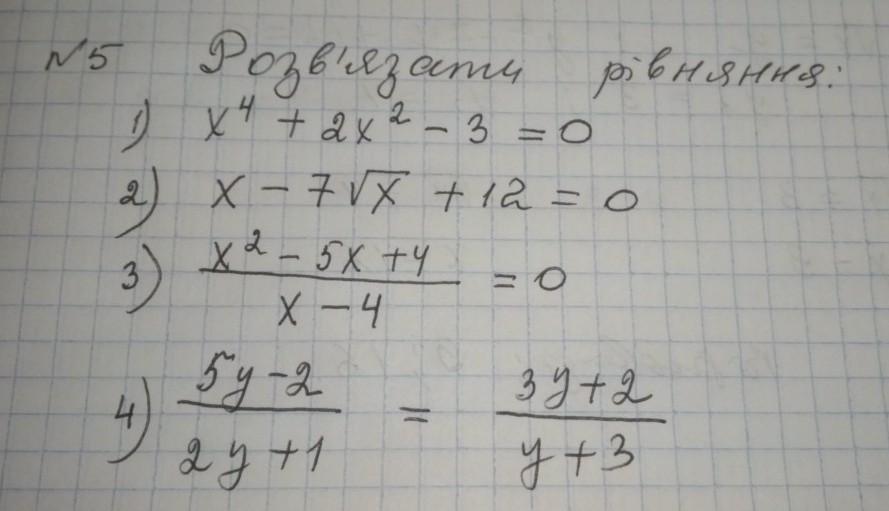 №5 Розв'язати рівняння:
1) x⁴ + 2x² - 3 = 0
2) x - 7√x + 12 = 0
3) (x² - 5x + 4)/(x - 4) = 0
4) (5y - 2)/(2y + 1) = (3y + 2)/(y + 3)